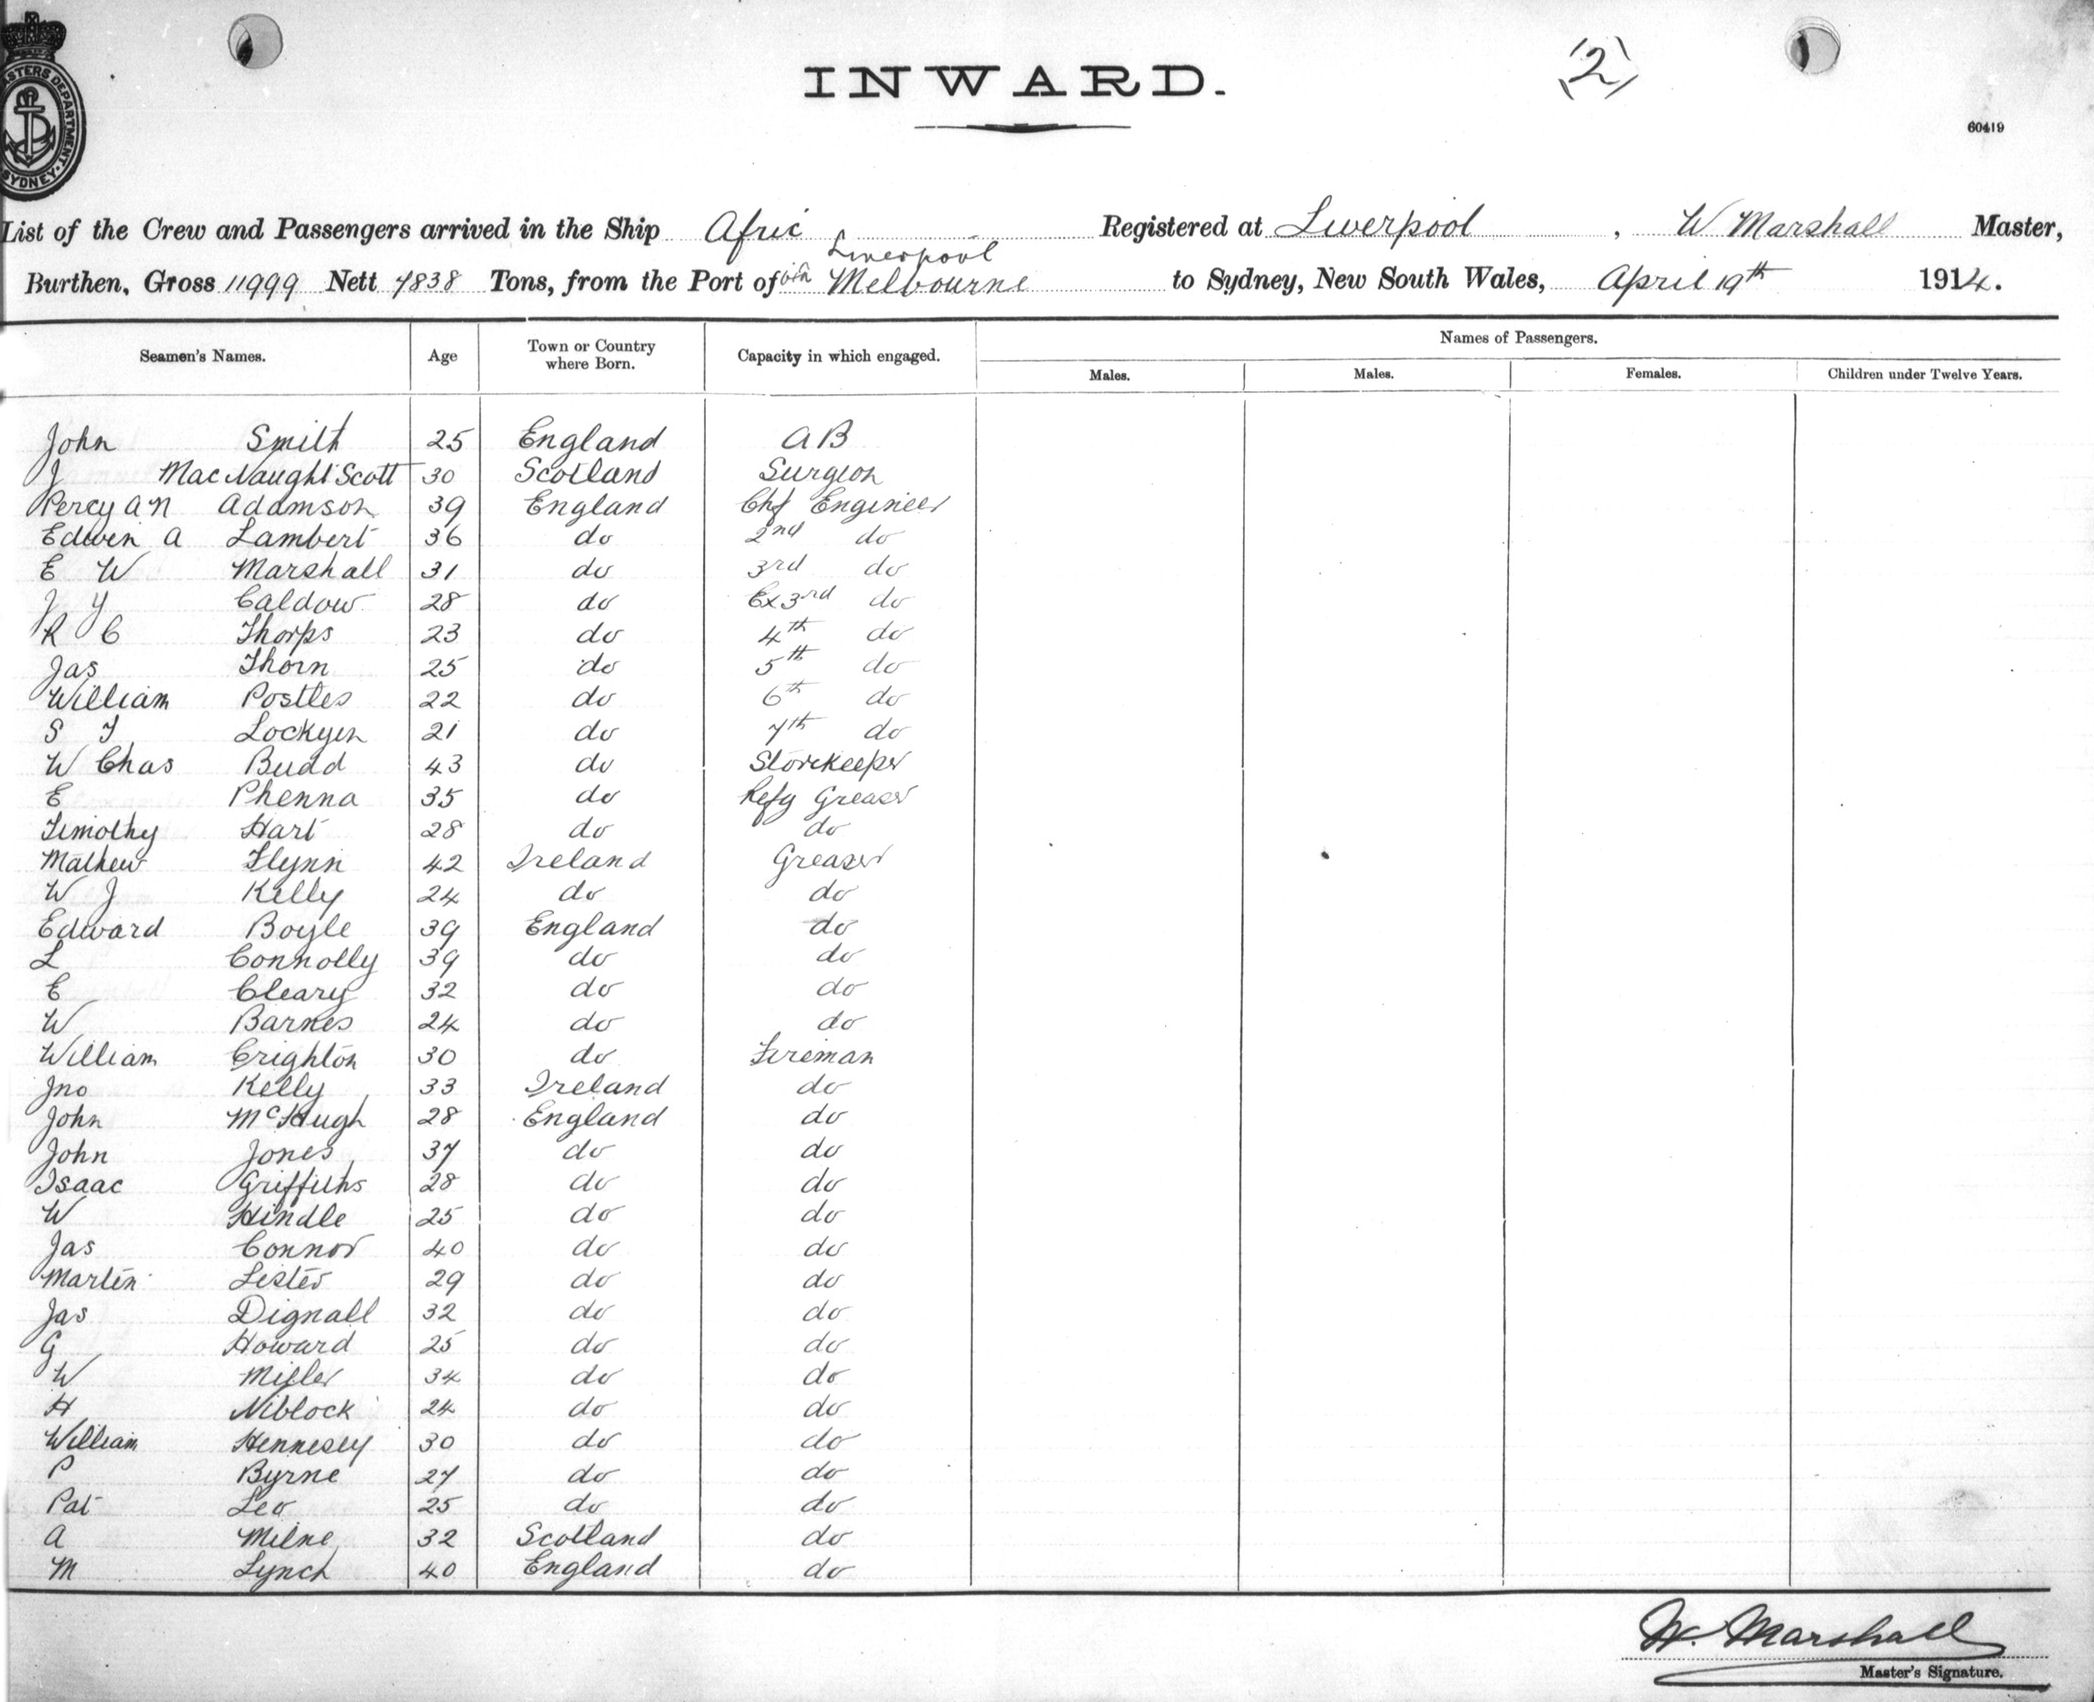 INWARD.
(2)
60419
MASTERS DEPARTMENT
SYDNEY
List of the Crew and Passengers arrived in the Ship Afric Registered at Liverpool, W Marshall Master,
Liverpool
Burthen, Gross 11999 Nett 7838 Tons, from the Port of via Melbourne to Sydney, New South Wales, April 19th 1914.
Seamen's Names. Age Town or Country where Born. Capacity in which engaged. Names of Passengers.
Males. Males. Females. Children under Twelve Years.
John Smith 25 England AB
J MacNaught Scott 30 Scotland Surgeon
Percy A N Adamson 39 England Chf Engineer
Edwin A Lambert 36 do 2nd do
E W Marshall 31 do 3rd do
J Y Caldow 28 do Ex 3rd do
R C Thorps 23 do 4th do
Jas Thorn 25 do 5th do
William Postles 22 do 6th do
S T Lockyer 21 do 7th do
W Chas Budd 43 do Storekeeper
E Phenna 35 do Refg Greaser
Timothy Hart 28 do do
Mathew Flynn 42 Ireland Greaser
W J Kelly 24 do do
Edward Boyle 39 England do
L Connolly 39 do do
E Cleary 32 do do
W Barnes 24 do do
William Crighton 30 do Fireman
Jno Kelly 33 Ireland do
John McHugh 28 England do
John Jones 37 do do
Isaac Griffiths 28 do do
W Hindle 25 do do
Jas Connor 40 do do
Martin Lister 29 do do
Jas Dignall 32 do do
G Howard 25 do do
W Miller 34 do do
H Niblock 24 do do
William Hennesey 30 do do
P Byrne 27 do do
Pat Leo 25 do do
A Milne 32 Scotland do
M Lynch 40 England do
W. Marshall
Master's Signature.